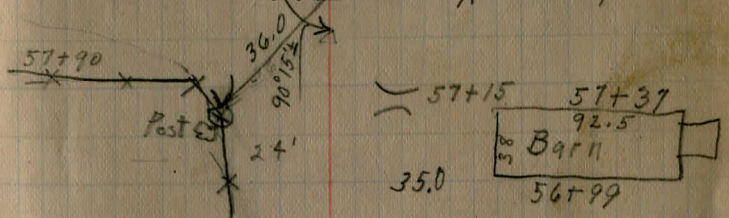 57+90
36.0
90°15'±
Post
24'
57+15
57+37
92.5
38
Barn
35.0
56+99